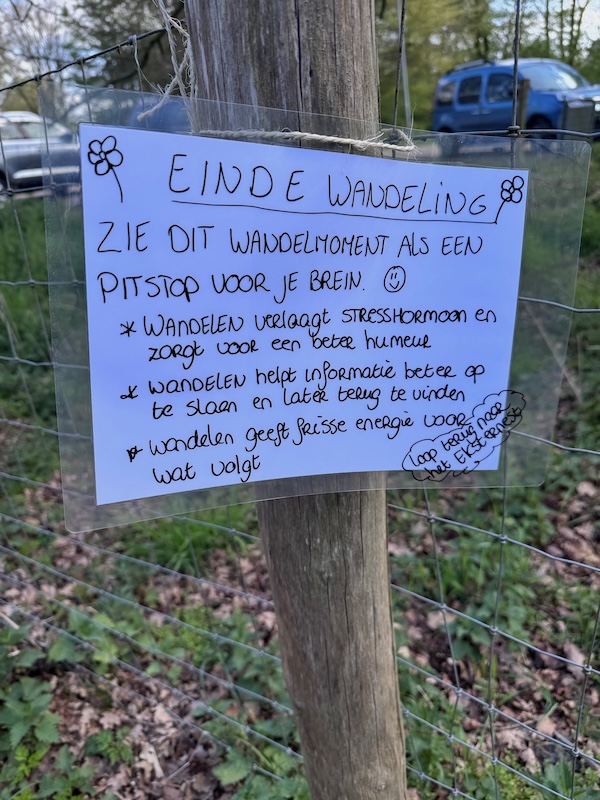 EINDE WANDELING
ZIE DIT WANDELMOMENT ALS EEN
PITSTOP VOOR JE BREIN. ☺
* WANDELEN verlaagt STRESSHORMOON en
zorgt voor een beter humeur
* WANDELEN helpt informatie beter op
te slaan en later terug te vinden
* wandelen geeft frisse energie voor
wat volgt
loop terug naar
het EKsternest